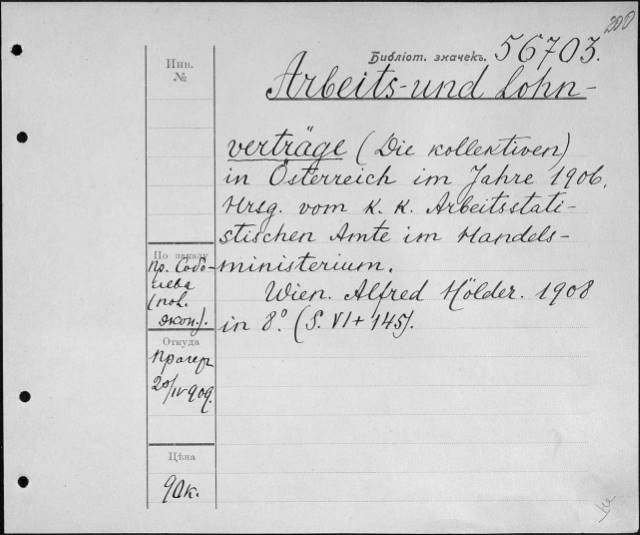 200
Библіот. значекъ. 56703.
Инв.
№
Arbeits-und Lohn-
verträge (Die kollektiven)
in Österreich im Jahre 1906.
Hrsg. vom K. K. Arbeitsstati-
stischen Amte im Handels-
ministerium.
Wien. Alfred Hölder. 1908
in 8.° (S. VI + 145).
По заказу
пр. Собо-
лева
(пол.
экон.).
Откуда
Прагеръ
20/IV 909.
Цѣна
90 к.